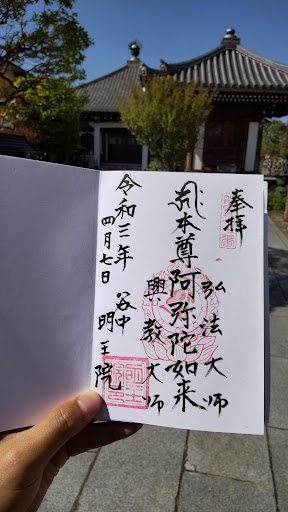 奉拝
弘法大師
本尊阿弥陀如来
興教大師
令和三年
四月七日
谷中
明王院